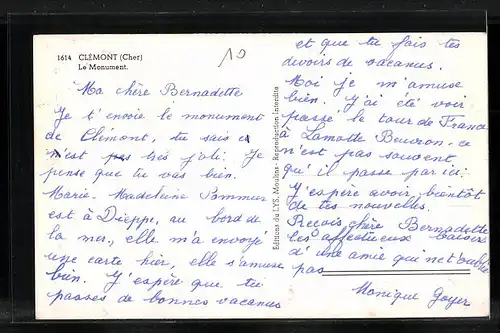 1614 CLÉMONT (Cher)
Le Monument.
10
Ma chère Bernadette
Je t'envoie le monument
de Clémont, tu sais il
n'est pas très joli. Je
pense que tu vas bien.
Marie-Madeleine Pommier
est à Dieppe, au bord de
la mer, elle m'a envoyé
une carte hier, elle s'amuse
bien. J'espère que tu
passes de bonnes vacances
Editions du LYS, Moulins - Reproduction Interdite
et que tu fais tes
devoirs de vacances.
Moi je m'amuse
bien. J'ai été voir
passé le tour de France
à Lamotte Beuvron, ce
n'est pas souvent
qu'il passe par ici.
J'espère avoir bientôt
de tes nouvelles.
Reçois chère Bernadette
les affectueux baisers
d'une amie qui ne t'oublie
pas
Monique Goyer